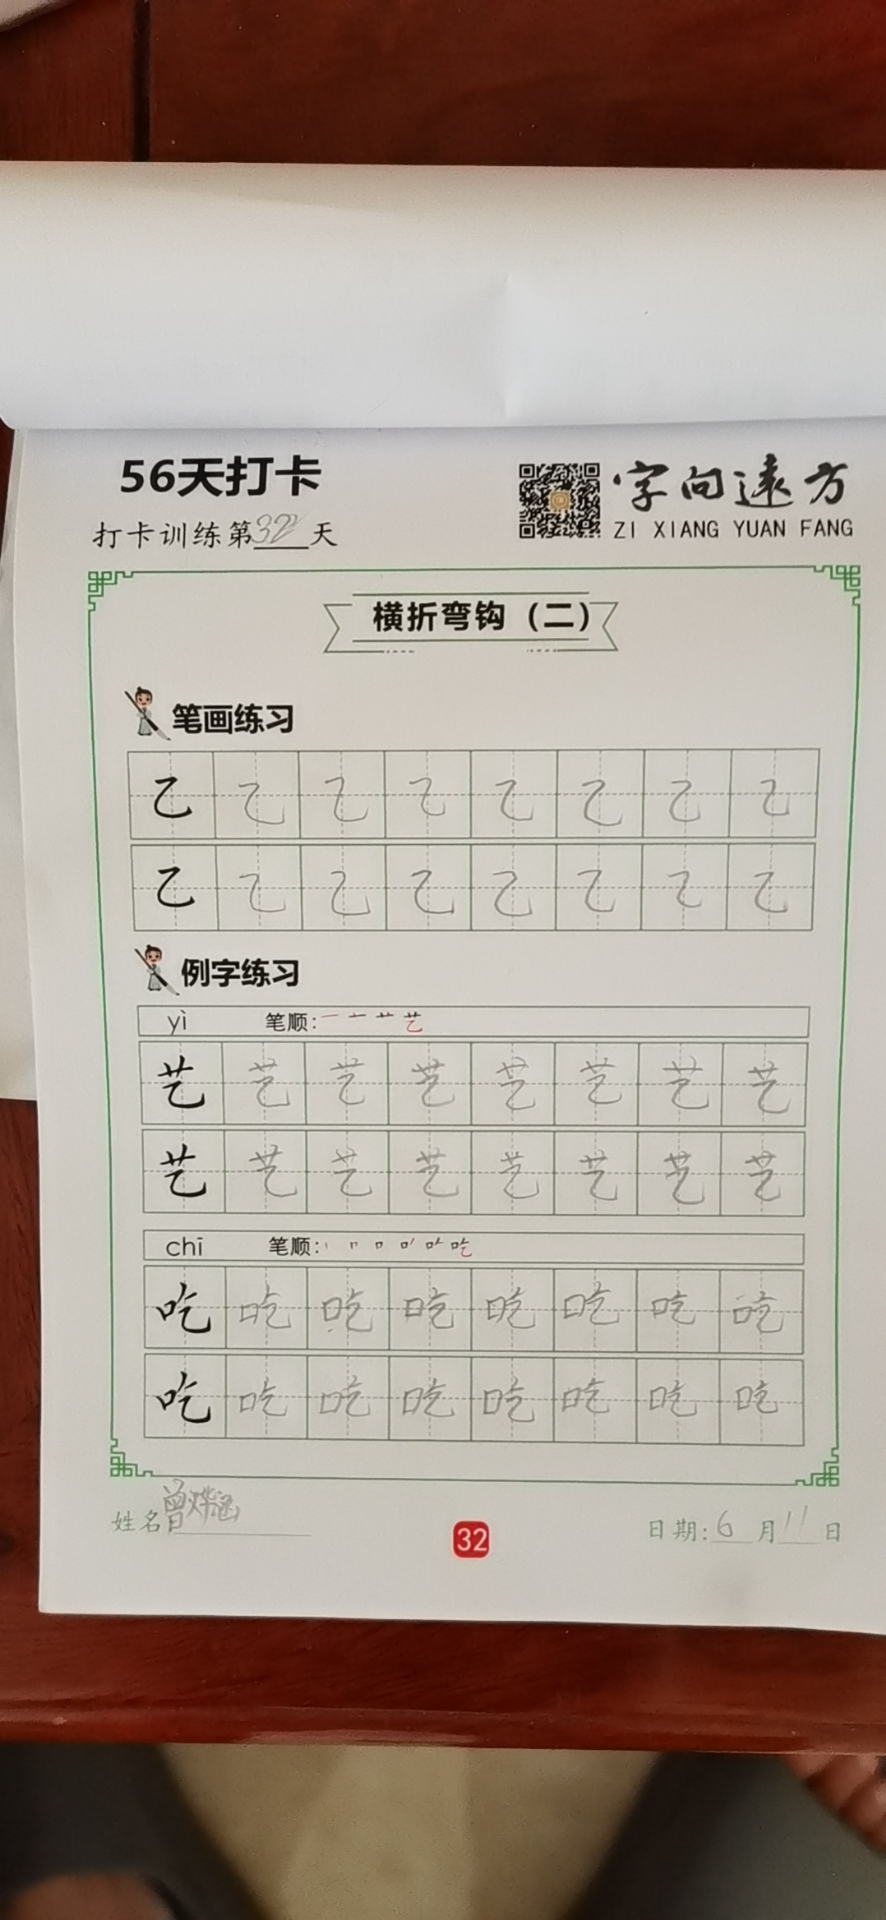 56天打卡
字向远方
打卡训练第32天
ZI XIANG YUAN FANG
横折弯钩（二）
笔画练习
乙 乙 乙 乙 乙 乙 乙 乙
乙 乙 乙 乙 乙 乙 乙 乙
例字练习
yì 笔顺：一 十 艹 艺
艺 艺 艺 艺 艺 艺 艺 艺
艺 艺 艺 艺 艺 艺 艺 艺
chī 笔顺：
吃 吃 吃 吃 吃 吃 吃 吃
吃 吃 吃 吃 吃 吃 吃 吃
姓名 曾烨涵
32
日期：6月11日